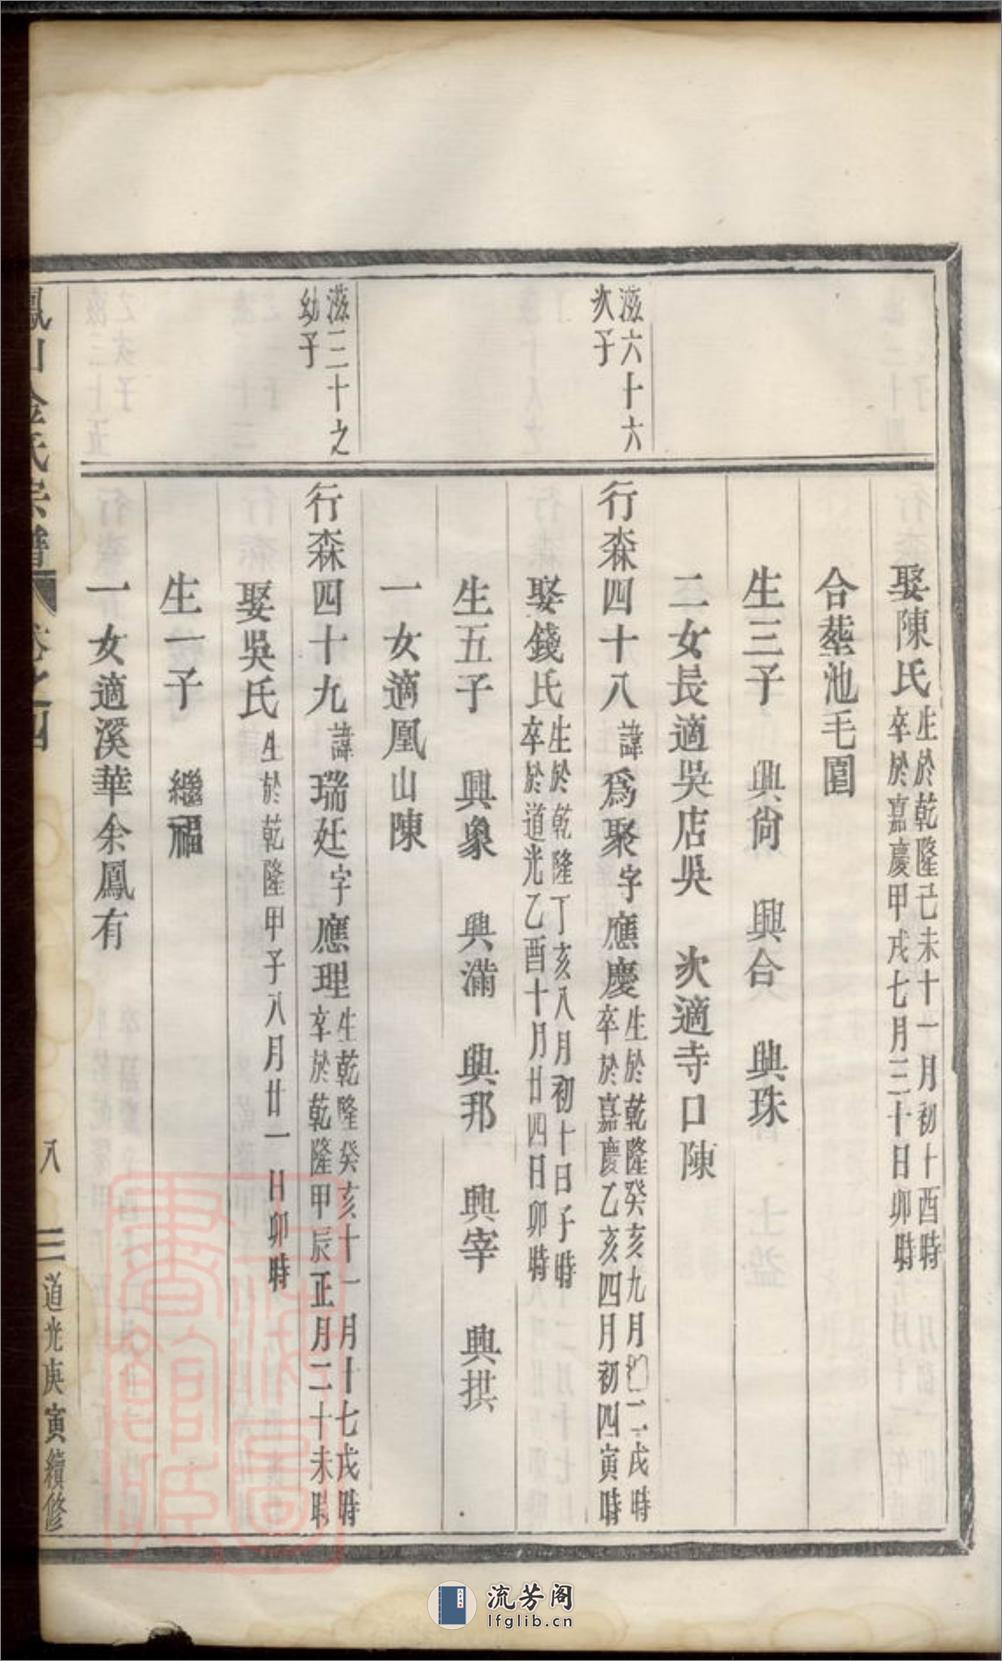 娶陳氏 生於乾隆己未十一月初十酉時 卒於嘉慶甲戌七月三十日卯時
合塟池毛圍
生三子 興尙 興合 興珠
二女長適吳店吳 次適寺口陳
滋六十六次子
行森四十八 諱爲聚字應慶 生於乾隆癸亥九月初二戌時 卒於嘉慶乙亥四月初四寅時
娶錢氏 生於乾隆丁亥八月初十日子時 卒於道光乙酉十月廿四日卯時
生五子 興象 興滿 興邦 興宰 興拱
一女適鳳山陳
滋三十之幼子
行森四十九 諱瑞廷字應理 生乾隆癸亥十一月十七戌時 卒於乾隆甲辰正月二十未時
娶吳氏 生於乾隆甲子八月廿一日卯時
生一子 繼福
一女適溪華余鳳有
鳳山金氏宗譜 卷之四 八 道光庚寅續修
上海圖書館藏
流芳阁
lfglib.cn